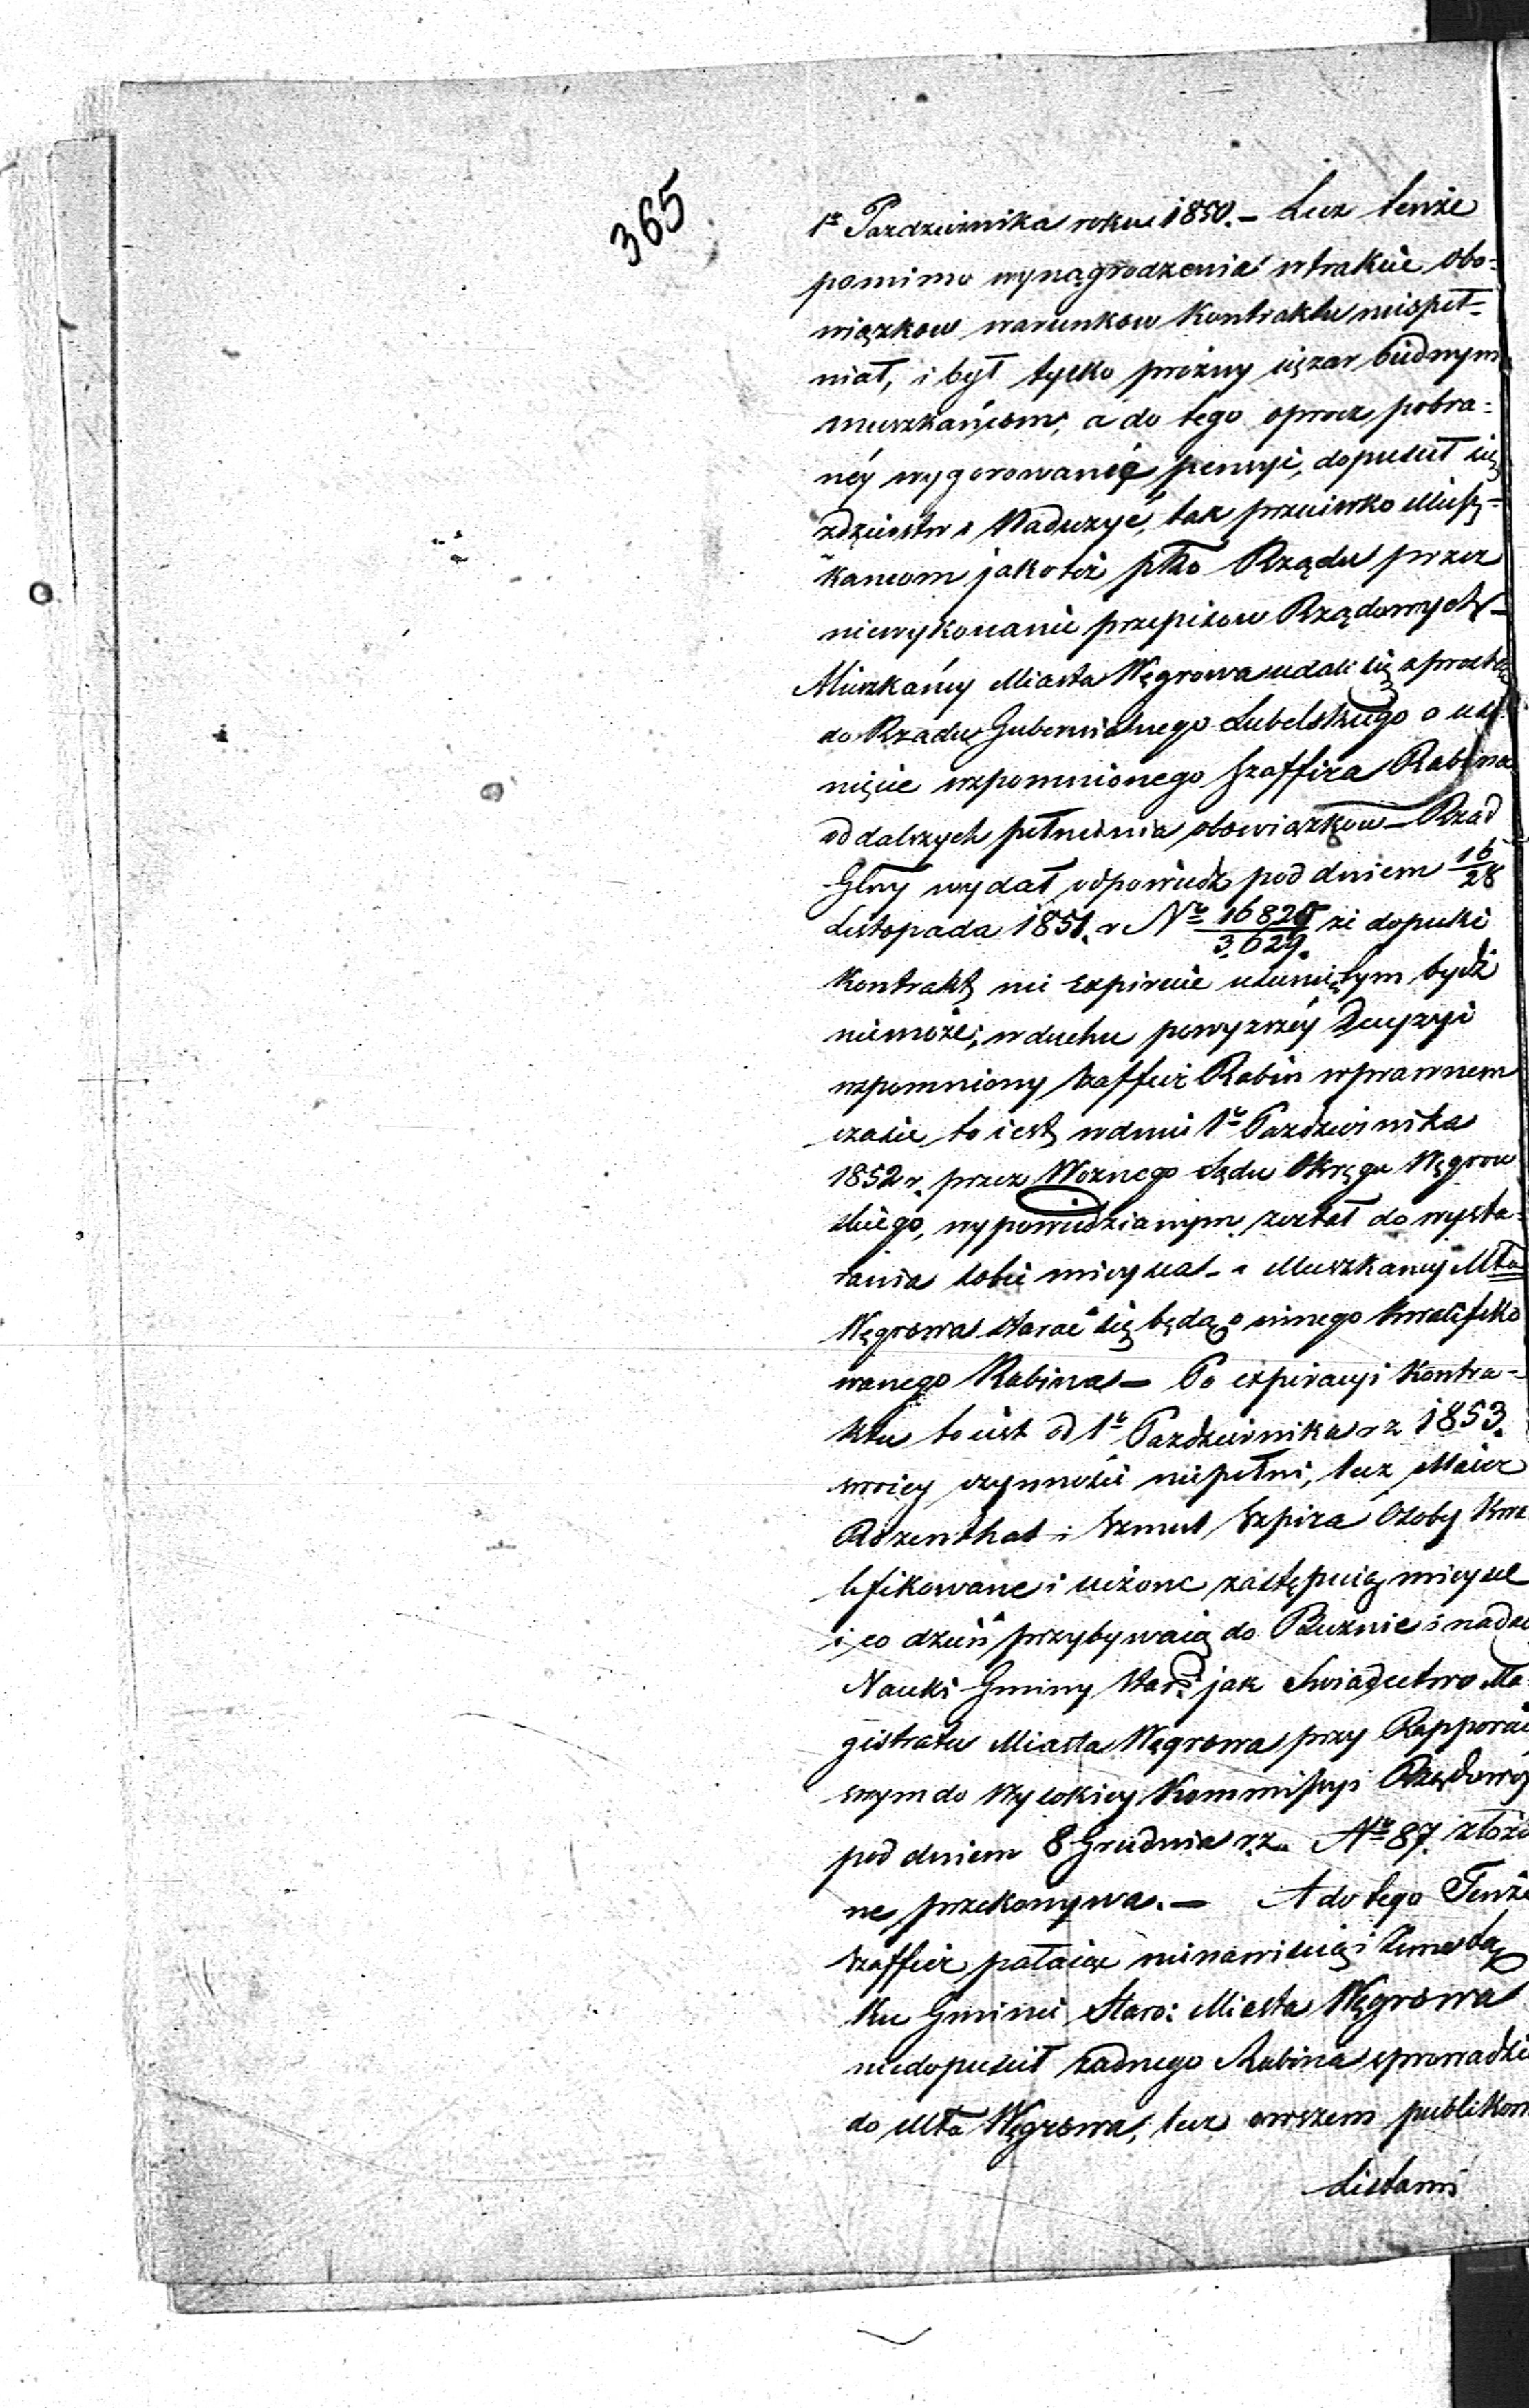 365
1º Pazdziernika roku 1850. – Lecz tenże
pomimo wynagrodzenia w trakcie obo-
wiązkow warunkow Kontraktu niespeł-
niał, i był tylko prożny ciężar biednym
mieszkańcom, a do tego oprocz pobra-
néy wygorowanéy pensyi, dopuścił się
zdzierstw i Nadużyć, tak przeciwko Miesz-
kancom jakoteż pko Rządu przez
niewykonanie przepisow Rządowych –
Mieszkańcy Miasta Węgrowa udali się z prozbą
do Rządu Gubernialnego Lubelskiego o usu
nięcie wzpomnionego Szaffira Rabina
od dalszych pełnienia obowiązkow – Rząd
Glny wydał odpowiedz pod dniem 16/28
Listopada 1851. r Nº 16820/3,629. że dopuki
Kontrakt nie expiruie usuniętym bydź
niemoże, w duchu powyzszéy Decyzyi
wzpomniony Szaffir Rabin w prawnem
czasie to iest w dniu 1º Pazdziernika
1852 r. przez Woznego Sądu Okręgu Węgrow
skiego, wypowiedzianym został do wysta-
rania sobie mieysca – a Mieszkancy Mta
Węgrowa starać się będą o innego kwalifiko
wanego Rabina – Po expiracyi Kontra-
ktu to iest od 1º Pazdziernika r z 1853.
swoiey czynności niepełni, lecz Maier
Rozenthal i Szmul Szpira Osoby kwa
lifikowane i uczone zastępuią mieysce
i co dzień przybywaią do Buznie i
Nauki Gminy Star: jak Swiadectwo Ma-
gistratu Miasta Węgrowa przy Rapporcie
swym do Wysokiey Kommissyi Rządowéy
pod dniem 8 Grudnia r.z. Nº 87. złożo
ne przekonywa. – A do tego Tenże
Szaffir pałaiąc nienawiścią i Zemstą
ku Gminie Staro: Miasta Węgrowa
niedopuścił żadnego Rabina sprowadzić
do Mta Węgrowa, lecz owszem publikow
Listami